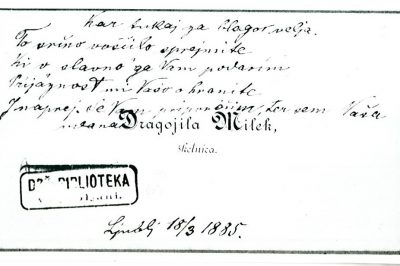 Kar tukaj za blagor velja.
To srčno voščilo sprejmite
Ki o slavno ga Vam podarim
Prijaznost mi Vašo ohranite
Inaprej če Vam priporočim, ter sem Vaša
udana Dragojila Milek,
šketnica.
BIBLIOTEKA
Ljublj 18/3 1885.